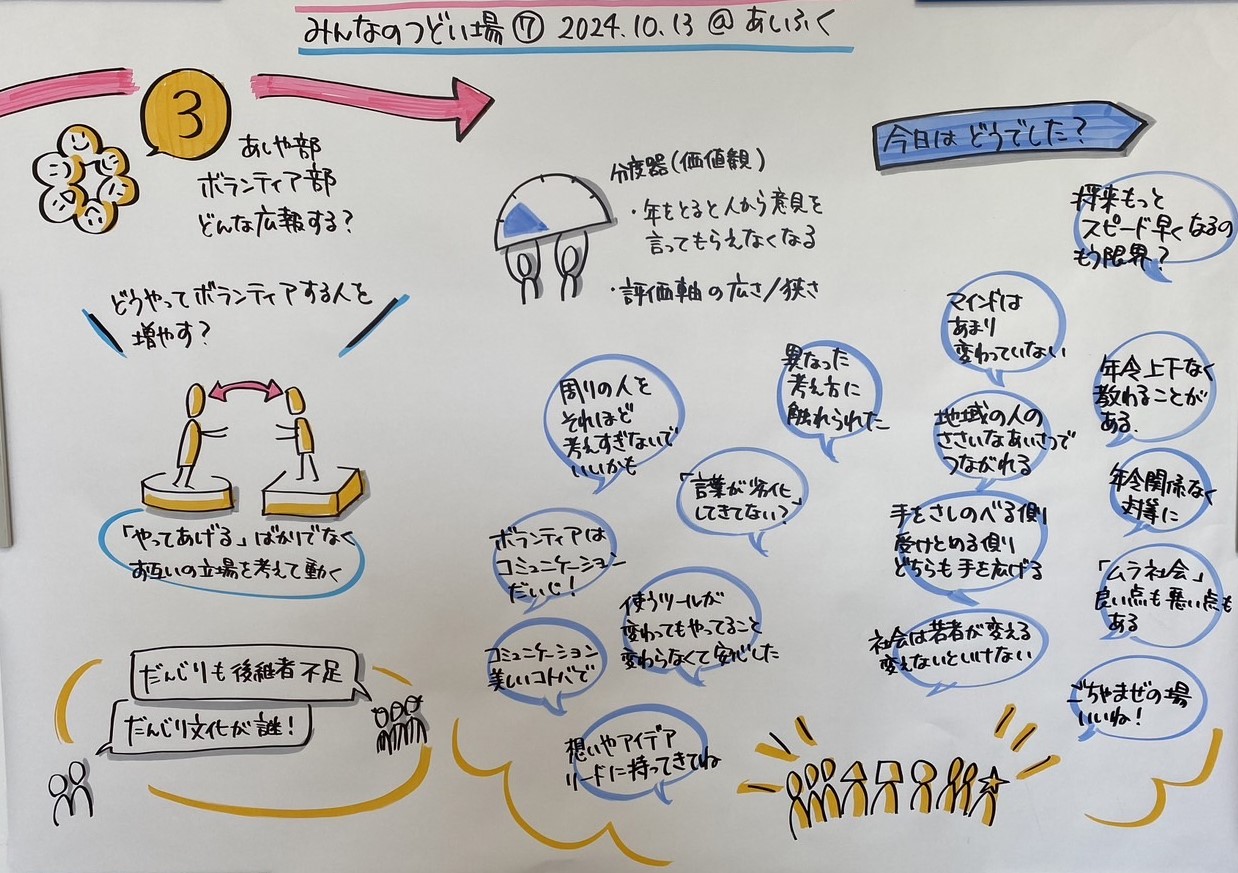 みんなのつどい場⑦ 2024.10.13 @ あしふく
3
あしや部
ボランティア部
どんな広報する?
どうやってボランティアする人を
増やす?
「やってあげる」ばかりでなく
お互いの立場を考えて動く
だんじりも後継者不足
だんじり文化が謎!
分度器(価値観)
・年をとると人から意見を
言ってもらえなくなる
・評価軸の広さ/狭さ
今日はどうでした?
周りの人を
それほど
考えすぎないで
いいかも
異なった
考え方に
触れられた
「言葉が劣化」
してきてない?
ボランティアは
コミュニケーション
だいじ!
使うツールが
変わってもやってること
変わらなくて安心した
コミュニケーション
美しいコトバで
想いやアイデア
リードに持ってきてね
将来もっと
スピード早くなるの
もう限界?
マインドは
あまり
変わっていない
地域の人の
ささいなあいさつで
つながれる
手をさしのべる側
受けとめる側
どちらも手を広げる
社会は若者が変える
変えないといけない
年令上下なく
教わることが
ある.
年令関係なく
対等に
「ムラ社会」
良い点も悪い点も
ある
ごちゃまぜの場
いいね!